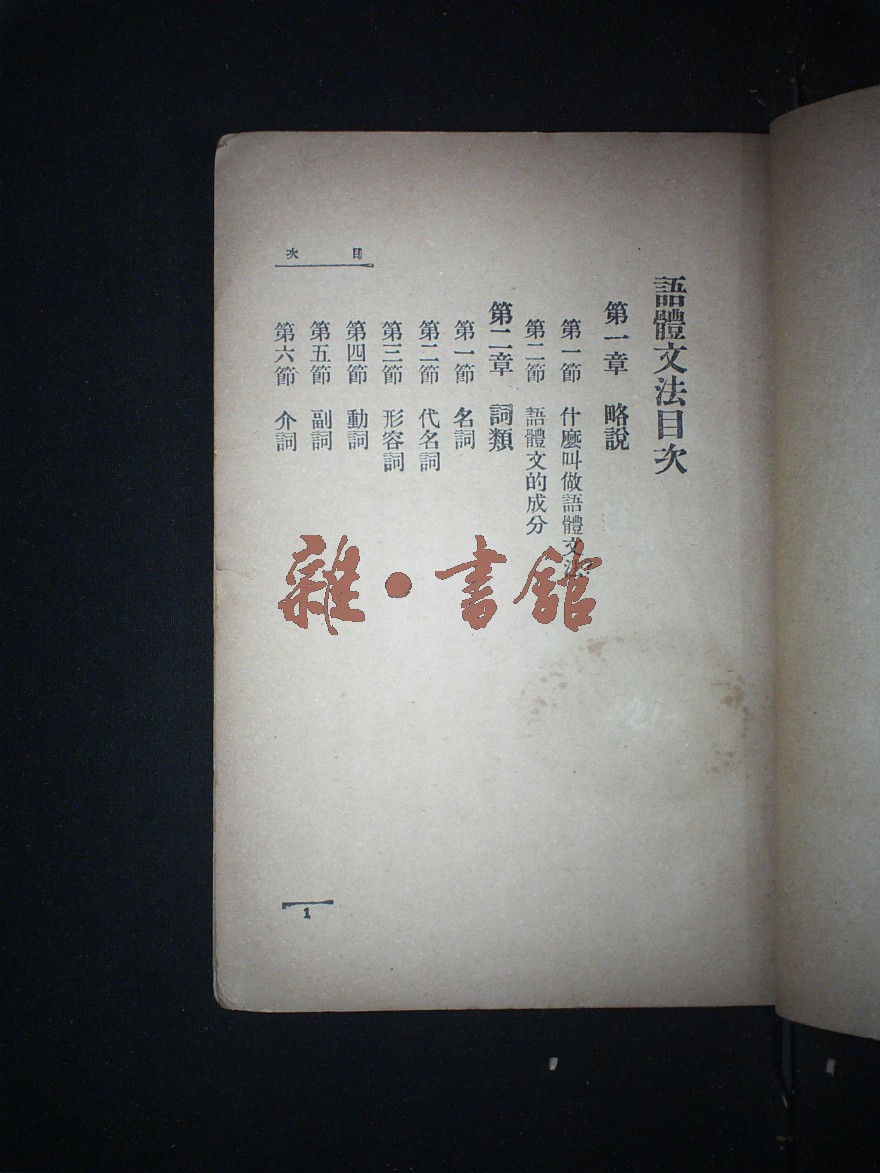 語體文法目次
第一章 略說
第一節 什麼叫做語體文法
第二節 語體文的成分
第二章 詞類
第一節 名詞
第二節 代名詞
第三節 形容詞
第四節 動詞
第五節 副詞
第六節 介詞
目次
1
雜·書館
21